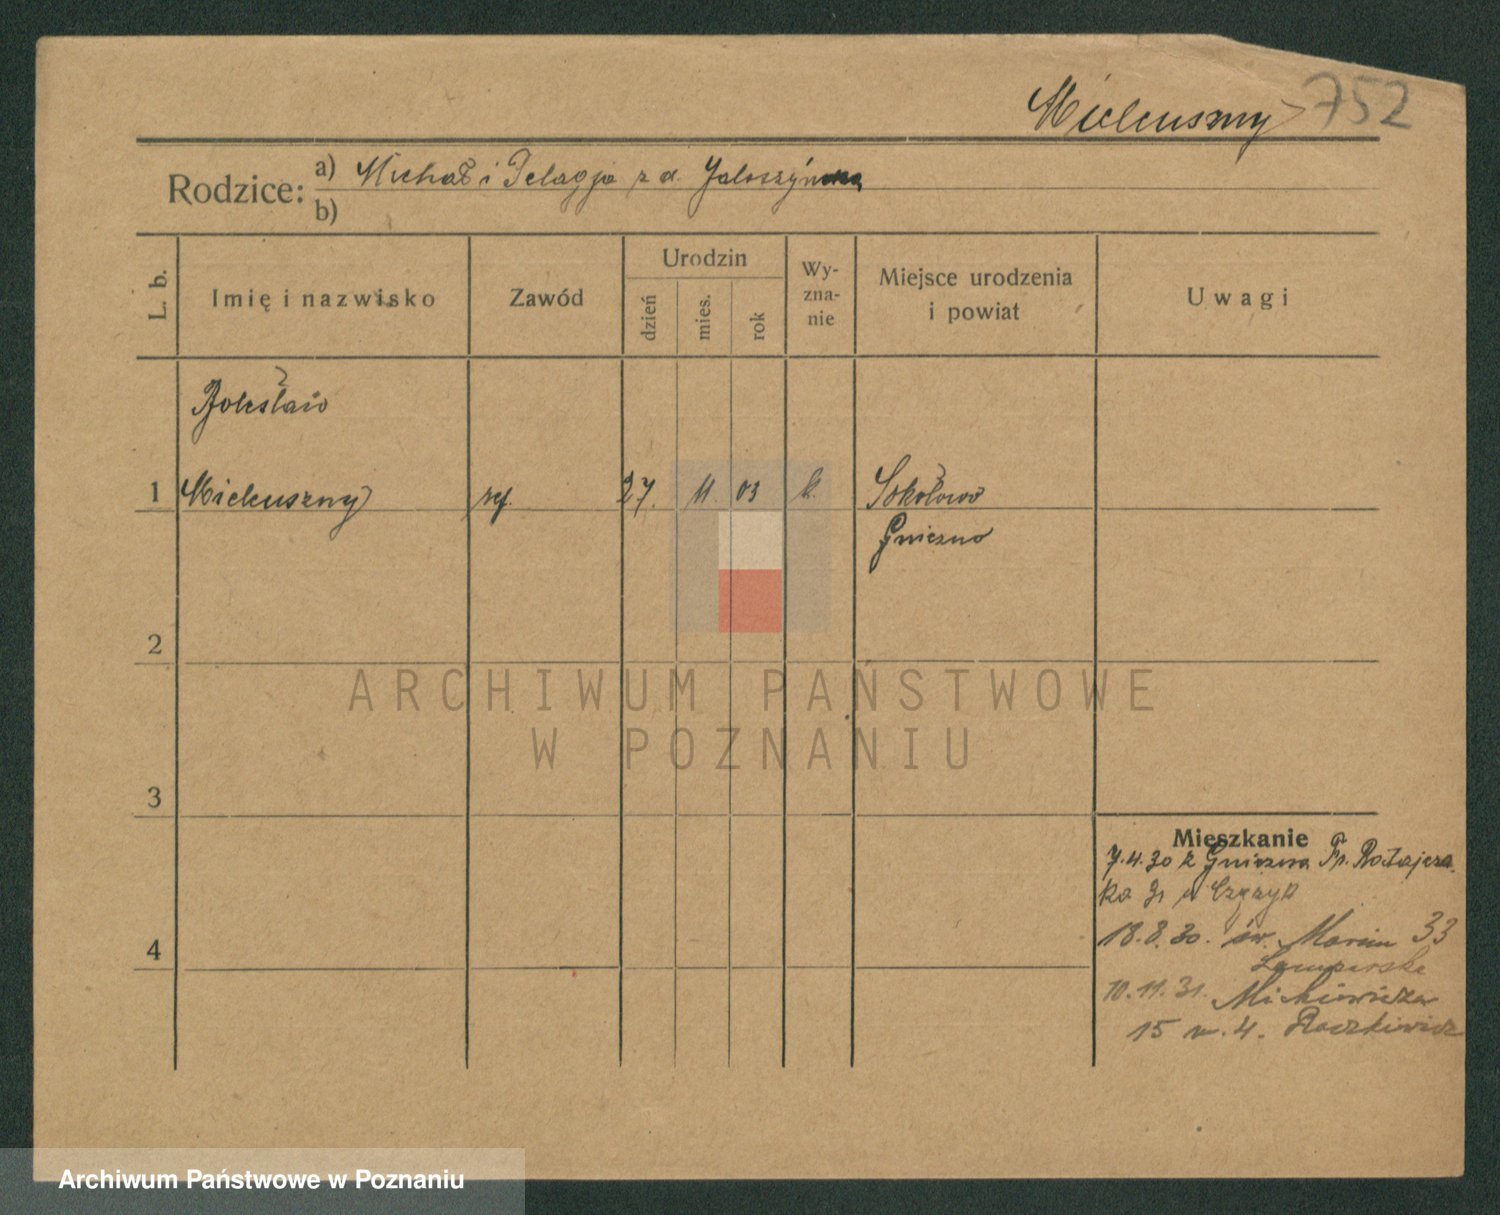 Mieleuszny 752
Rodzice: a) Michał i Pelagja z d. Jaloszyńska
b)
L. b.
Imię i nazwisko
Zawód
Urodzin
dzień
mies.
rok
Wy-
zna-
nie
Miejsce urodzenia
i powiat
Uwagi
Bolesław
1 Mieleuszny 27. 11. 03 k. Sokołowo
Gniezno
2
ARCHIWUM PAŃSTWOWE
W POZNANIU
3
Mieszkanie
7.4.30 z Gniezna Fr. Ratajcza
ka 31
18.8.30. św. Marcin 33
4
10.11.31. Mickiewicza
15 m. 4. Raczkiewicz
Archiwum Państwowe w Poznaniu